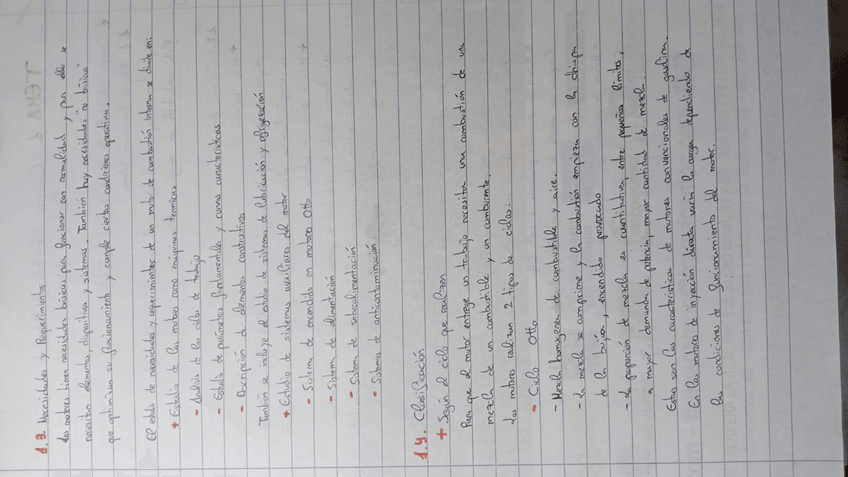 1.3. Necesidades y Requerimientos
Los motores tienen necesidades básicas para funcionar con normalidad, y para ello se
necesitan elementos, dispositivos y sistemas. También hay necesidades no básicas
que optimizan su funcionamiento y cumple ciertas condiciones operativas.
El estudio de necesidades y requerimientos de un motor de combustión interna se divide en:
+ Estudio de los motores como máquinas térmicas
- Análisis de los ciclos de trabajo
- Estudio de parámetros fundamentales y curvas características
- Descripción de elementos constructivos
También se incluye el estudio de sistemas de lubricación y refrigeración
+ Estudio de sistemas auxiliares del motor
- Sistema de encendido en motores Otto
- Sistema de alimentación
- Sistema de sobrealimentación
- Sistemas de anticontaminación
1.4. Clasificación
+ Según el ciclo que realizan
Para que el motor entregue un trabajo necesitan una combustión de una
mezcla de un combustible y un comburente.
Los motores realizan 2 tipos de ciclos:
- Ciclo Otto
- Mezcla homogénea de combustible y aire.
- La mezcla se comprime y la combustión empieza con la chispa
de la bujía, encendido provocado
- La preparación de mezcla es cuantitativa, entre pequeños límites,
a mayor demanda de potencia, mayor cantidad de mezcla.
Estas son las características de motores convencionales de gasolina.
En los motores de inyección directa varía la carga dependiendo de
las condiciones de funcionamiento del motor.